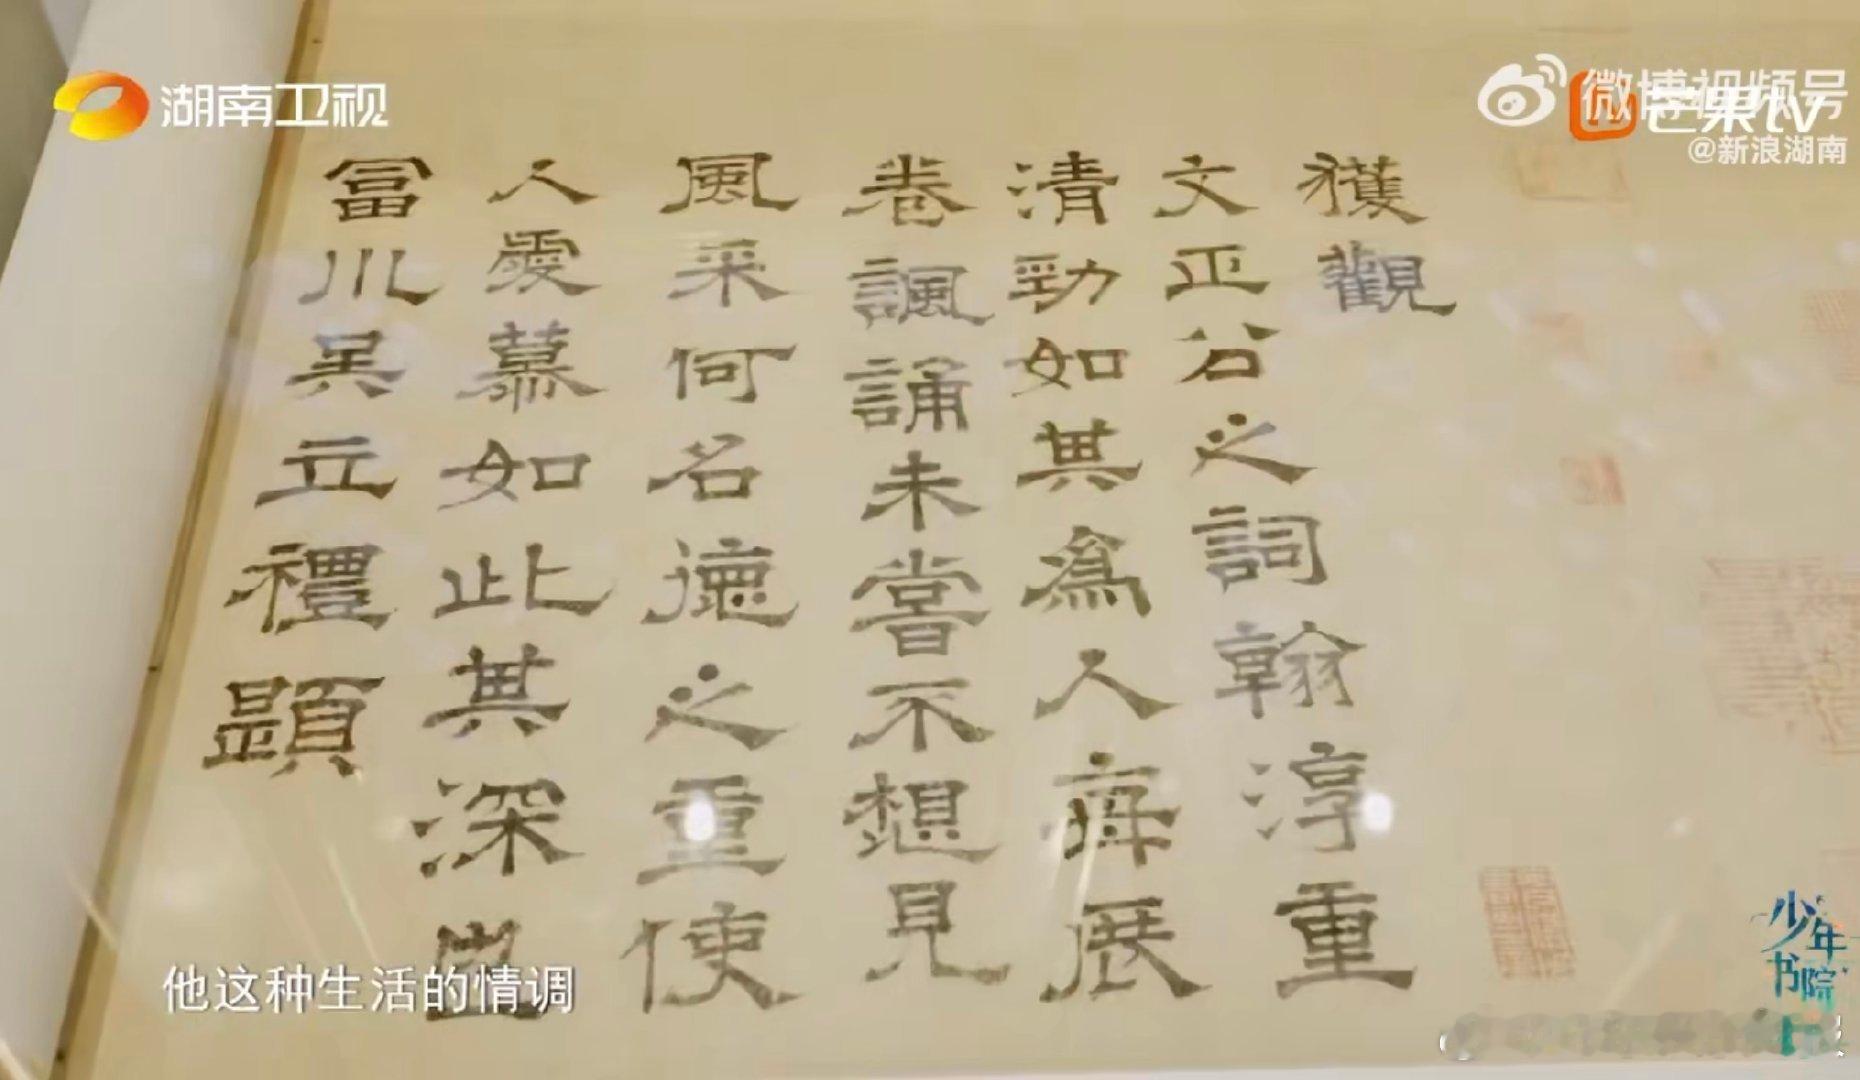 湖南卫视
微博视频号
芒果tv
@新浪湖南
獲觀
文正公之詞翰淳重
清勁如其為人每展
卷諷誦未嘗不想見
風采何名德之重使
人愛慕如此其深
富川吳立禮題
他这种生活的情调
少年
书院